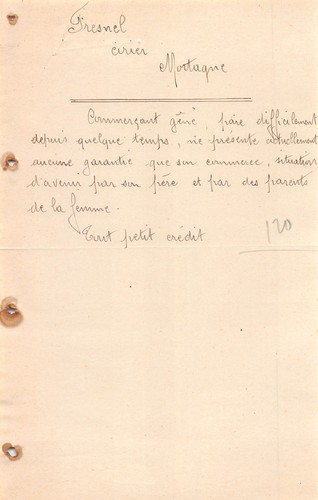 Fresnel
cirier
Mortagne
Commerçant gêné, paie difficilement
depuis quelque temps, ne présente actuellement
aucune garantie que son commerce, situation
d'avenir par son père et par des parents
de la femme.
Tout petit crédit
120